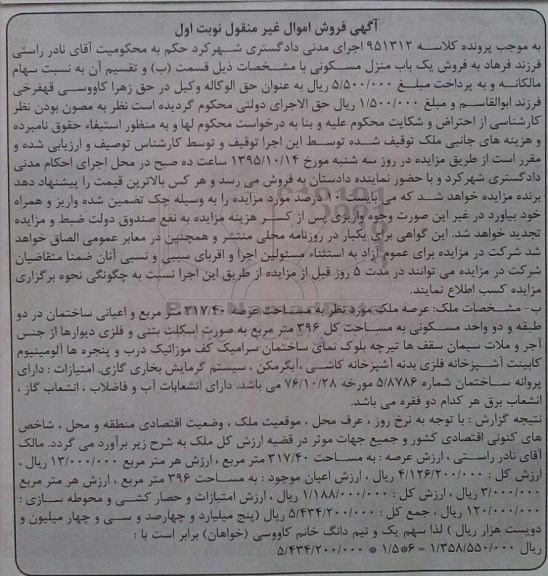 آگهی فروش اموال غیر منقول نوبت اول
به موجب پرونده کلاسه ۹۵۱۳۱۲ اجرای مدنی دادگستری شهرکرد حکم به محکومیت آقای نادر راستی
فرزند فرهاد به فروش یک باب منزل مسکونی با مشخصات ذیل قسمت (ب) و تقسیم آن به نسبت سهام
مالکانه و به پرداخت مبلغ ۵/۵۰۰/۰۰۰ ریال به عنوان حق الوکاله وکیل در حق زهرا کاووسی قهفرخی
فرزند ابوالقاسم و مبلغ ۱/۵۰۰/۰۰۰ ریال حق الاجرای دولتی محکوم گردیده است نظر به مصون بودن نظر
کارشناسی از احتراض و شکایت محکوم علیه و بنا به درخواست محکوم لها و به منظور استیفاء حقوق نامبرده
و هزینه های جانبی ملک توقیف شده توسط این اجرا توقیف و توسط کارشناس توصیف و ارزیابی شده و
مقرر است از طریق مزایده در روز سه شنبه مورخ ۱۳۹۵/۱۰/۱۴ ساعت ده صبح در محل اجرای احکام مدنی
دادگستری شهرکرد و با حضور نماینده دادستان به فروش می رسد و هر کس بالاترین قیمت را پیشنهاد دهد
برنده مزایده خواهد شد که می بایست ۱۰ درصد مورد مزایده را به وسیله چک تضمین شده واریز و همراه
خود بیاورد در غیر این صورت وجوه واریزی پس از کسر هزینه مزایده به نفع صندوق دولت ضبط و مزایده
تجدید خواهد شد. این گواهی برای یکبار در روزنامه محلی منتشر و همچنین در معابر عمومی الصاق خواهد
شد شرکت در مزایده برای عموم آزاد به استثناء مسئولین اجرا و اقربای سببی و نسبی آنان ضمنا متقاضیان
شرکت در مزایده می توانند در مدت ۵ روز قبل از مزایده از طریق این اجرا نسبت به چگونگی نحوه برگزاری
مزایده کسب اطلاع نمایند.
ب- مشخصات ملک: عرصه ملک مورد نظر به مساحت عرصه ۳۱۷/۴۰ متر مربع و اعیانی ساختمان در دو
طبقه و دو واحد مسکونی به مساحت کل ۳۹۶ متر مربع به صورت اسکلت بتنی و فلزی دیوارها از جنس
آجر و ملات سیمان سقف ها تیرچه بلوک نمای ساختمان سرامیک کف موزائیک درب و پنجره ها آلومینیوم
کابینت آشپزخانه فلزی بدنه آشپزخانه کاشی ،آبگرمکن ، سیستم گرمایش بخاری گازی. امتیازات : دارای
پروانه ساختمان شماره ۵/۸۷۸۶ مورخه ۷۶/۱۰/۲۸ می باشد. دارای انشعابات آب و فاضلاب ، انشعاب گاز ،
انشعاب برق هر کدام دو فقره می باشد.
نتیجه گزارش : با توجه به نرخ روز ، عرف محل ، موقعیت ملک ، وضعیت اقتصادی منطقه و محل ، شاخص
های کنونی اقتصادی کشور و جمیع جهات موثر در قضیه ارزش کل ملک به شرح زیر برآورد می گردد. مالک
آقای نادر راستی ، ارزش عرصه : به مساحت ۳۱۷/۴۰ متر مربع ، ارزش هر متر مربع ۱۳/۰۰۰/۰۰۰ ریال ،
ارزش کل : ۴/۱۲۶/۲۰۰/۰۰۰ ریال ، ارزش اعیان موجود : به مساحت ۳۹۶ متر مربع ، ارزش هر متر مربع
۳/۰۰۰/۰۰۰ ریال ، ارزش کل : ۱/۱۸۸/۰۰۰/۰۰۰ ریال ، ارزش امتیازات و حصار کشی و محوطه سازی :
۱۲۰/۰۰۰/۰۰۰ ریال ، جمع کل : ۵/۴۳۴/۲۰۰/۰۰۰ ریال (پنج میلیارد و چهارصد و سی و چهار میلیون و
دویست هزار ریال ) لذا سهم یک و نیم دانگ خانم کاووسی (خواهان) برابر است با :
ریال ۱/۳۵۸/۵۵۰/۰۰۰ = ۶÷۱/۵ * ۵/۴۳۴/۲۰۰/۰۰۰